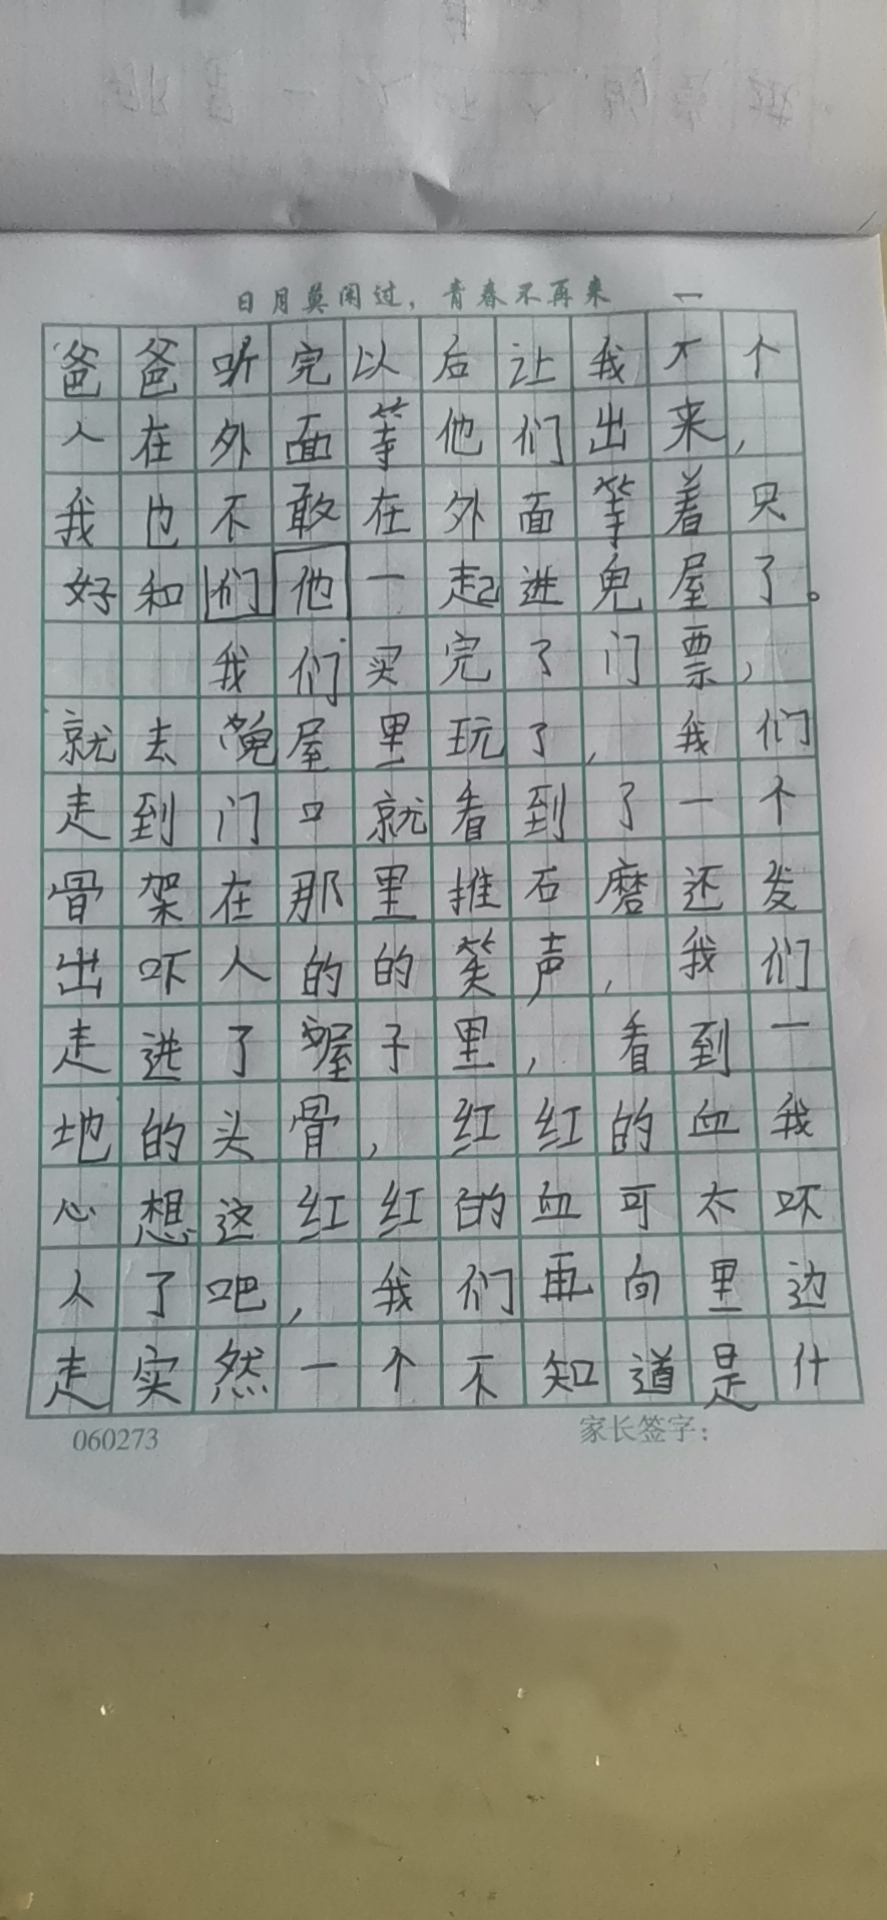 日月莫闲过，青春不再来
爸爸听完以后让我一个
人在外面等他们出来，
我也不敢在外面等着只
好和们他一起进鬼屋了。
我们买完了门票，
就去鬼屋里玩了，我们
走到门口就看到了一个
骨架在那里推石磨还发
出吓人的的笑声，我们
走进了屋子里，看到一
地的头骨，红红的血我
心想这红红的血可太吓
人了吧，我们再向里边
走突然一个不知道是什
060273
家长签字：